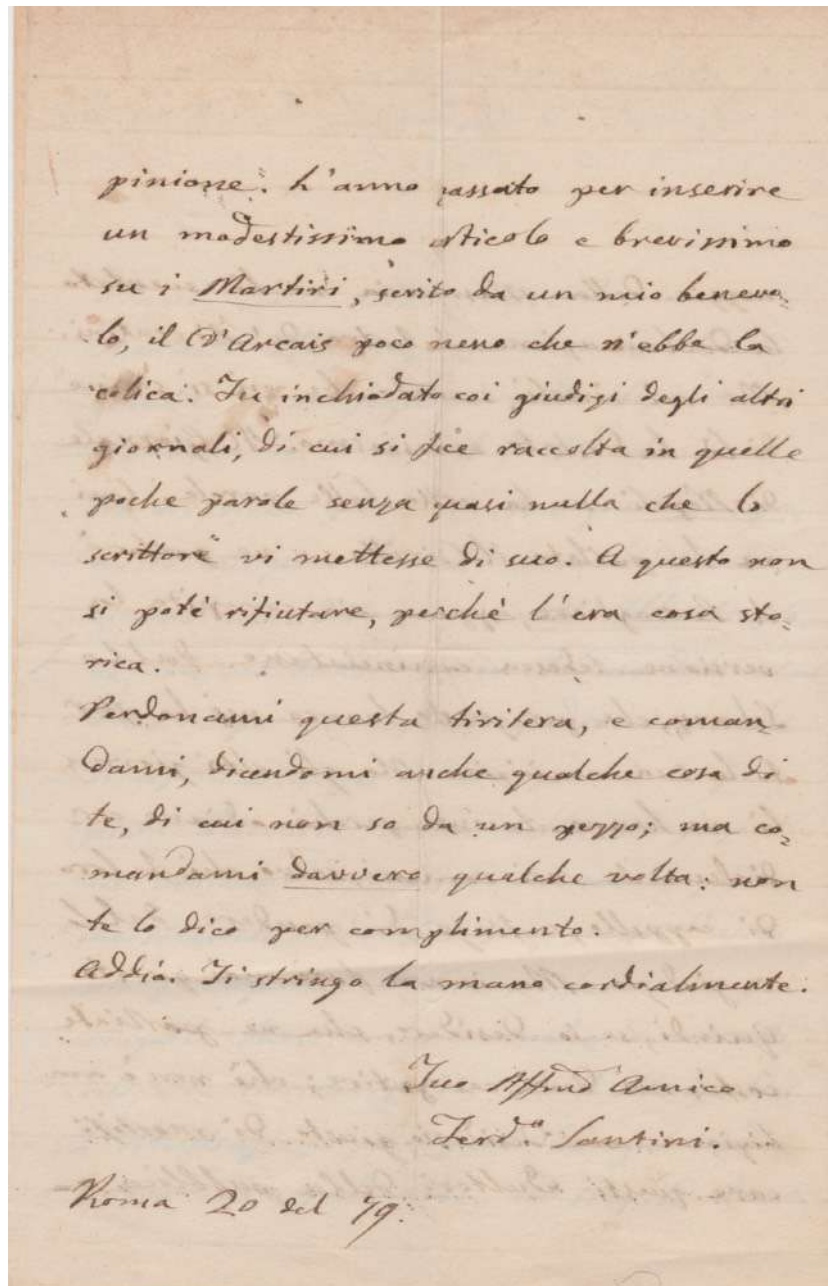 pinione. L'anno passato per inserire
un modestissimo articolo e brevissimo
su i Martiri, scrito da un mio benevo-
lo, il D'Arcais poco neno che n'ebbe la
colica. Fu inchiodato coi giudizi degli altri
giornali, di cui si fece raccolta in quelle
poche parole senza quasi nulla che lo
scrittore vi mettesse di suo. A questo non
si poté rifiutare, perchè l'era cosa sto-
rica.
Perdonami questa tiritera, e coman-
dami, dicendomi anche qualche cosa di
te, di cui non so da un pezzo; ma co-
mandami davvero qualche volta: non
te lo dico per complimento.
Addio. Ti stringo la mano cordialmente.
Tuo Affmo Amico
Ferd.o Santini.
Roma 20 del 79.